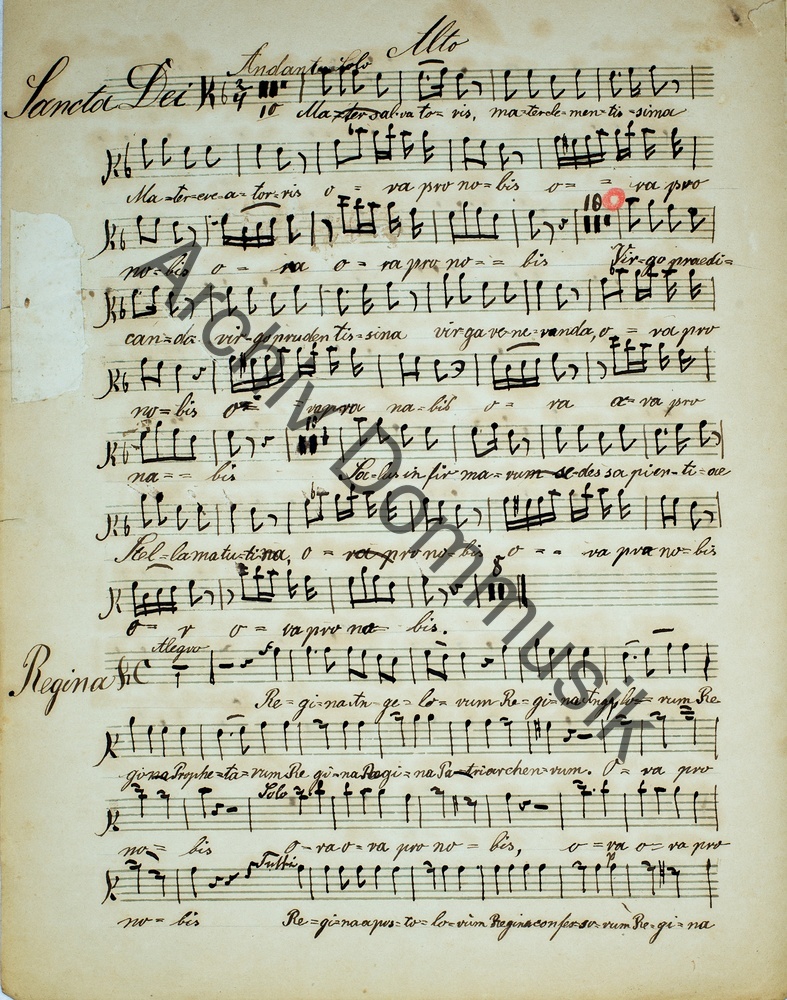 Alto
Andante Solo
Sancta Dei
10
Ma=ter sal=va to= ris, ma=ter cle=men=tis=sima
Ma=ter cre=a=tor=ris o = ra pro no=bis o= = ra pro
10
no=bis o = ra o = ra pro no= = bis Vir=go praedi=
can=da vir=go pruden tis=sina virga ve=ne=randa, o = ra pro
no=bis o= = rapra na=bis o = ra o=ra pro
10
na= = bis Sa=lus in fir ma=rum se=des sapien=ti=ae
Stel=la matu=tina, o = ra pro no=bis o = = ra pra no=bis
8
o= r o = ra pro na= bis.
Alegro
Regina
Re=gi=na An=ge=lo=rum Re=gi=na Angelo=rum Re=
gina Prophe=ta=rum Re gi=na Regi=na Pa=triarchen=rum. O=ra pro
Solo
no= bis o=ra o=ra pro no= bis, o =ra o=ra pro
Tutti
p
no=bis Re=gi=na apos=to=lo=rum Regina confes=so=rum Re=gi=na
Archiv Dommusik